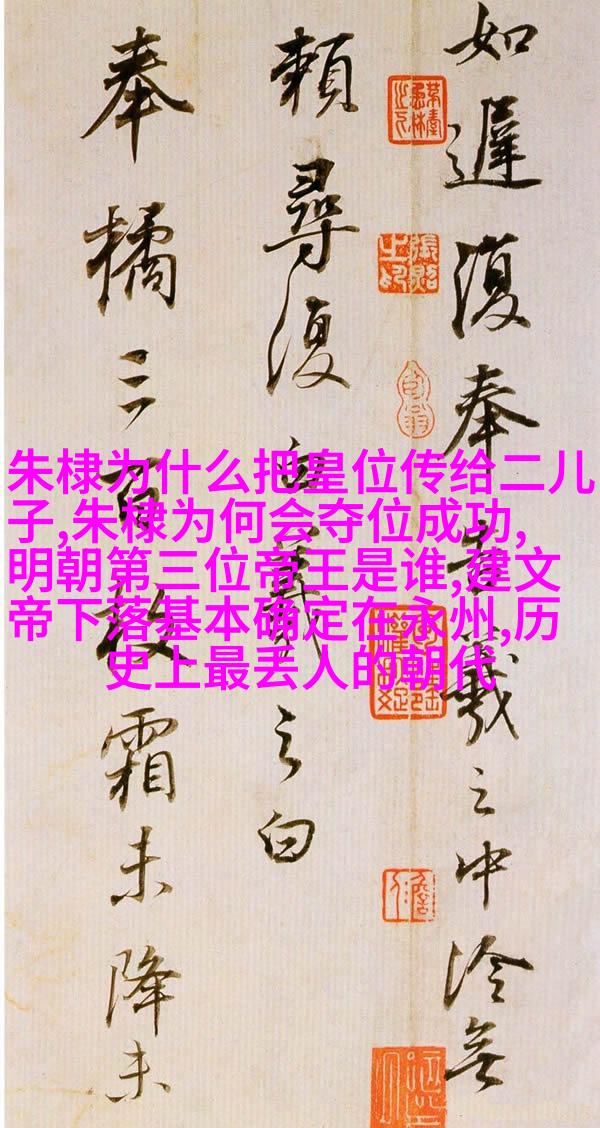 如遲復奉告羲之中冷無
賴尋復白羲之白
奉橘三百枚霜未降未
朱棣为什么把皇位传给二儿
子,朱棣为何会夺位成功,
明朝第三位帝王是谁,建文
帝下落基本确定在永州,历
史上最丢人的朝代